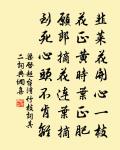 韭菜花開心一枝
花正黃時葉正肥
願郎摘花連葉摘
到死心頭不肯離
梁啓超台灣竹枝詞其
二詞典網喜